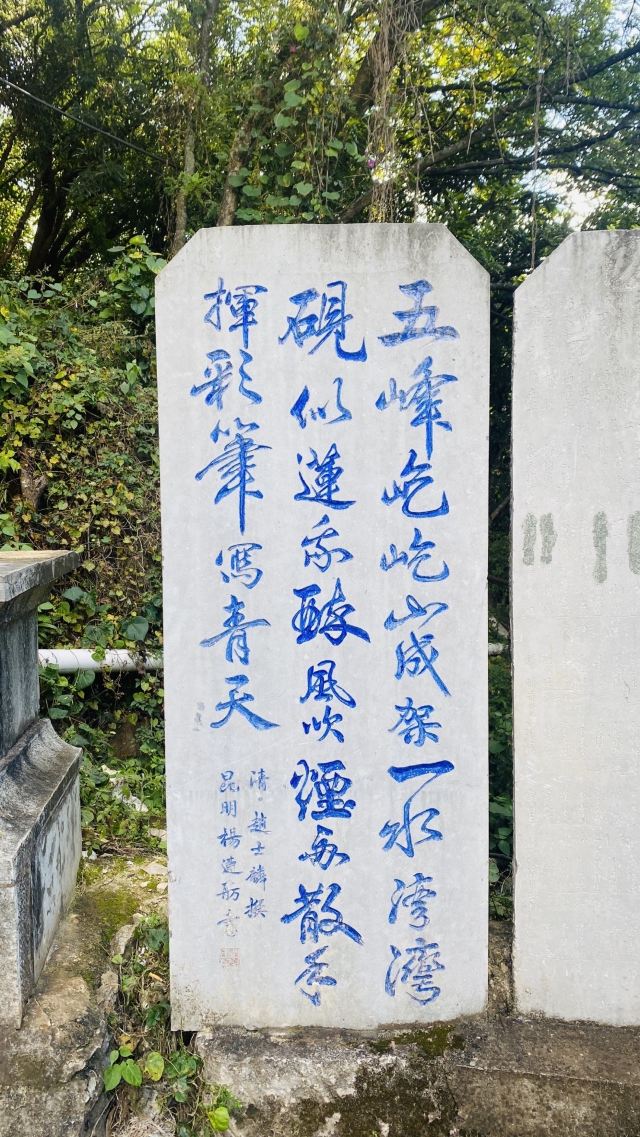 五峰屹屹山成架一水湾湾
硯似蓮我醉風吹煙散手
揮彩筆寫青天
清·趙士麟撰
昆明楊舫書